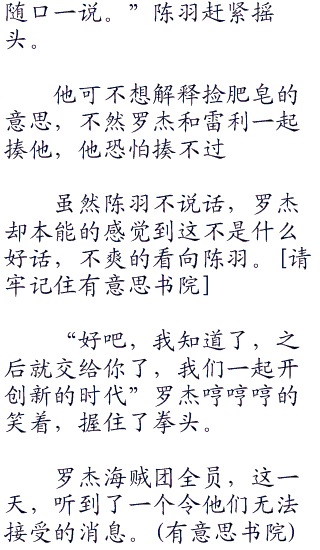 随口一说。”陈羽赶紧摇
头。
他可不想解释捡肥皂的
意思，不然罗杰和雷利一起
揍他，他恐怕揍不过
虽然陈羽不说话，罗杰
却本能的感觉到这不是什么
好话，不爽的看向陈羽。[请
牢记住有意思书院]
“好吧，我知道了，之
后就交给你了，我们一起开
创新的时代”罗杰哼哼哼的
笑着，握住了拳头。
罗杰海贼团全员，这一
天，听到了一个令他们无法
接受的消息。(有意思书院)